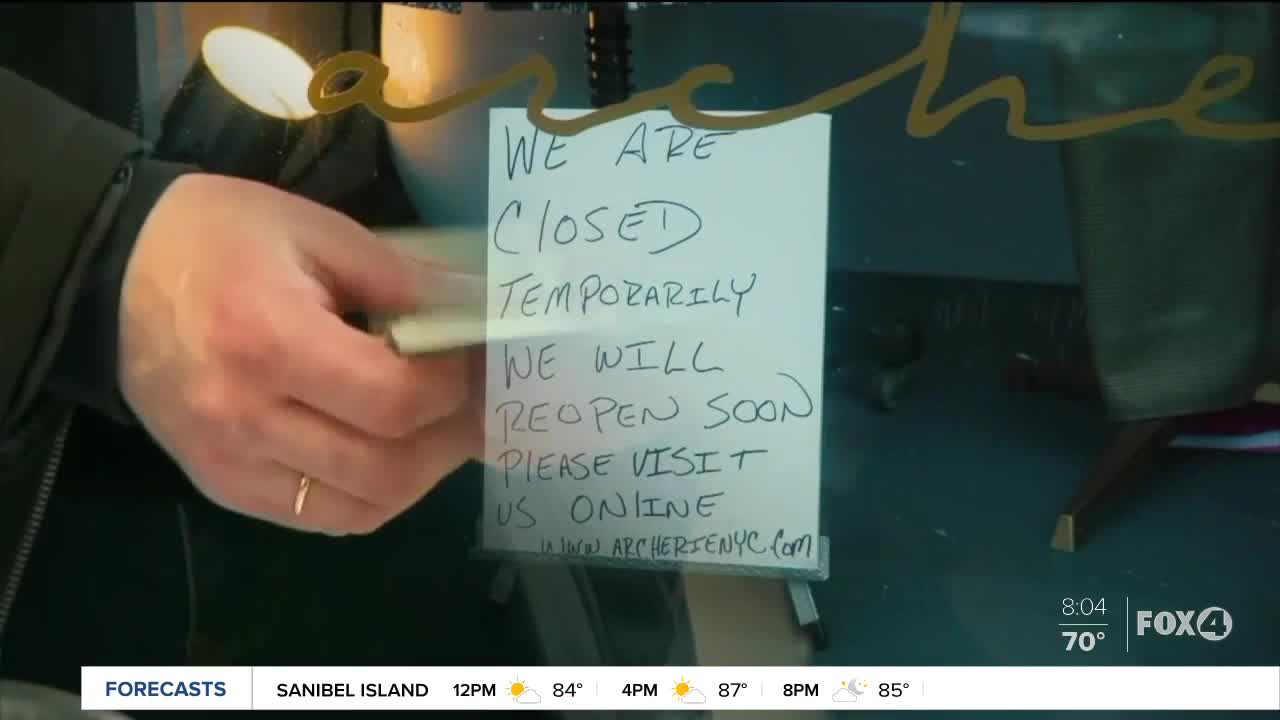 arche
WE ARE
CLOSED
TEMPORARILY
WE WILL
REOPEN SOON
PLEASE VISIT
US ONLINE
WWW ARCHERIENYC.com
8:04
70°
FOX4
FORECASTS SANIBEL ISLAND 12PM 84° 4PM 87° 8PM 85°